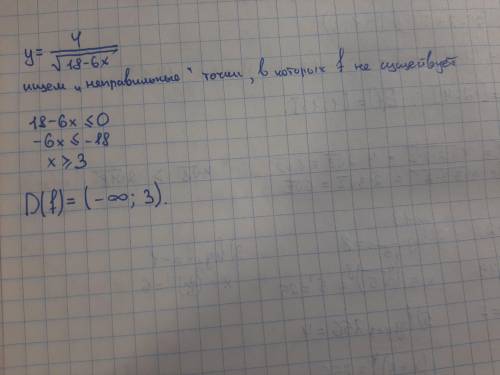 y = 4/√(18-6x)
ищем „неправильные" точки, в которых f не существует
18-6x ≤ 0
-6x ≤ -18
x ≥ 3
D(f) = (-∞; 3).